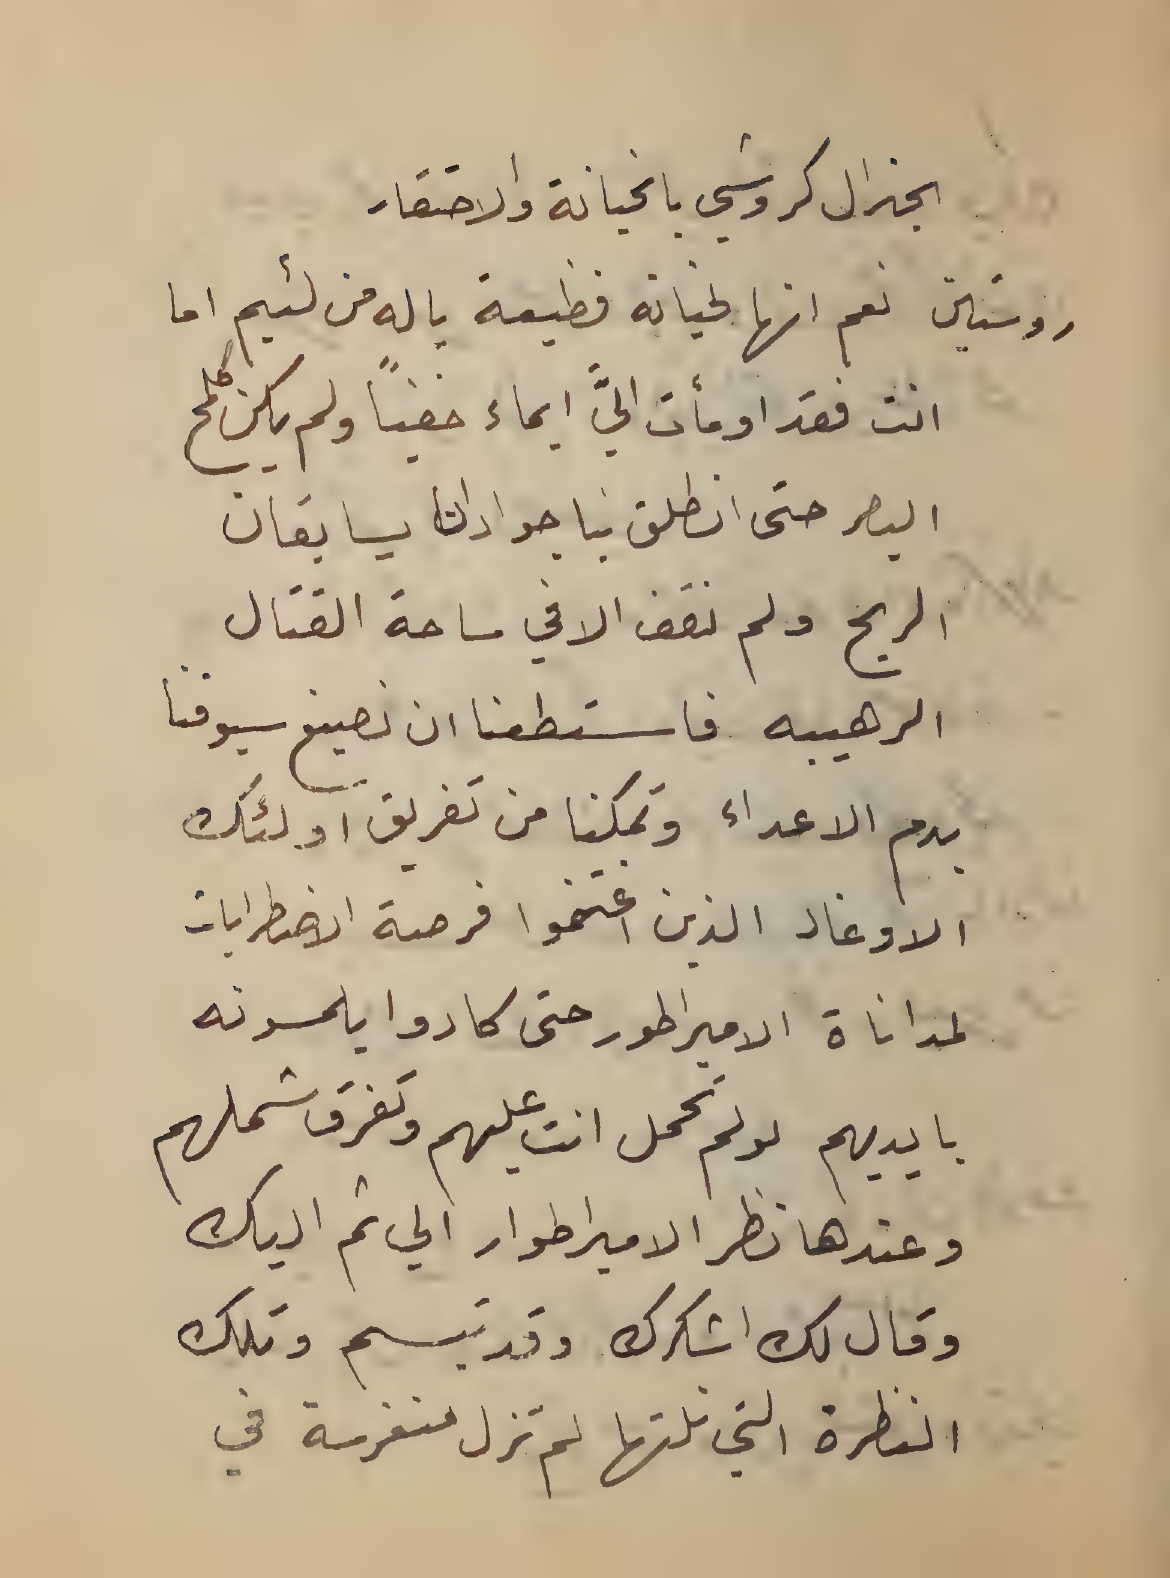 الجنرال كروشي بالخيانة والاحتقار
روستين نعم انها لخيانه فظيعة ياله من لئيم اما
انت فقد اومأت اليَّ ايماء خفياً ولم يكن كلمح
البصر حتى انطلق بنا جوادانا يسابقان
الريح ولم نقف الا في ساحة القتال
الرهيبه فاستطعنا ان نصبغ سيوفنا
بدم الاعداء وتمكنا من تفريق اولئك
الاوغاد الذين اغتنموا فرصة الاضطرابات
لمداناة الامبراطور حتى كادوا يلمسونه
بايديهم لو لم تحمل انت عليهم وتفرق شملهم
وعندها نظر الامبراطوار الي ثم اليك
وقال لك اشكرك وقد تبسم وتلك
النظرة التي نلتها لم تزل منغرسة في